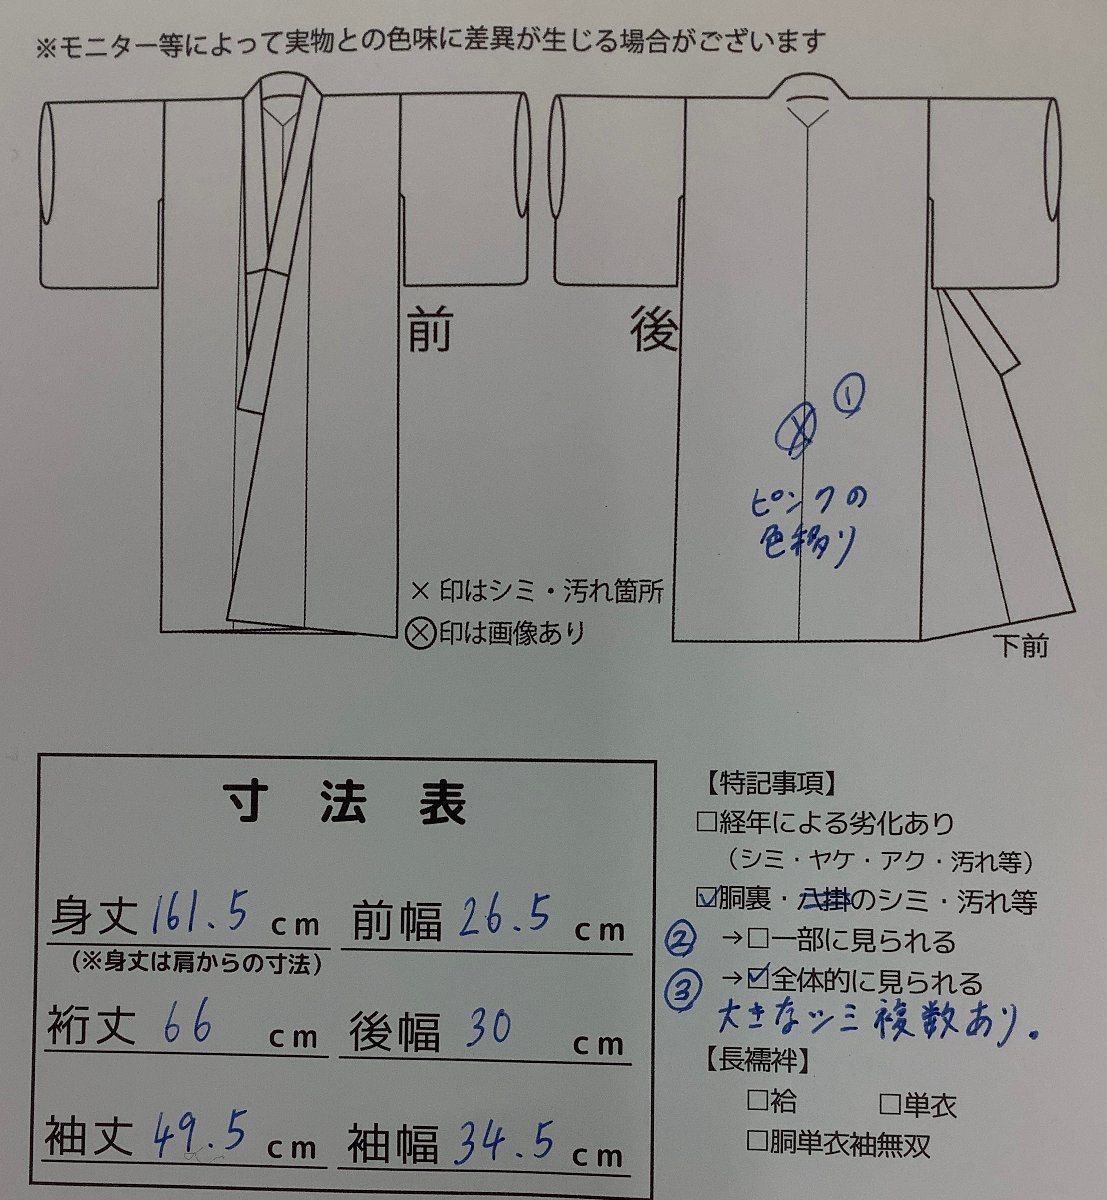 ※モニター等によって実物との色味に差異が生じる場合がございます
前
後
①
ピンクの
色移り
×印はシミ・汚れ箇所
⊗印は画像あり
下前
寸法表
身丈 161.5 cm 前幅 26.5 cm
(※身丈は肩からの寸法)
裄丈 66 cm 後幅 30 cm
袖丈 49.5 cm 袖幅 34.5 cm
【特記事項】
□経年による劣化あり
(シミ・ヤケ・アク・汚れ等)
☑胴裏・八掛のシミ・汚れ等
② →□一部に見られる
③ →☑全体的に見られる
大きなシミ複数あり。
【長襦袢】
□袷 □単衣
□胴単衣袖無双